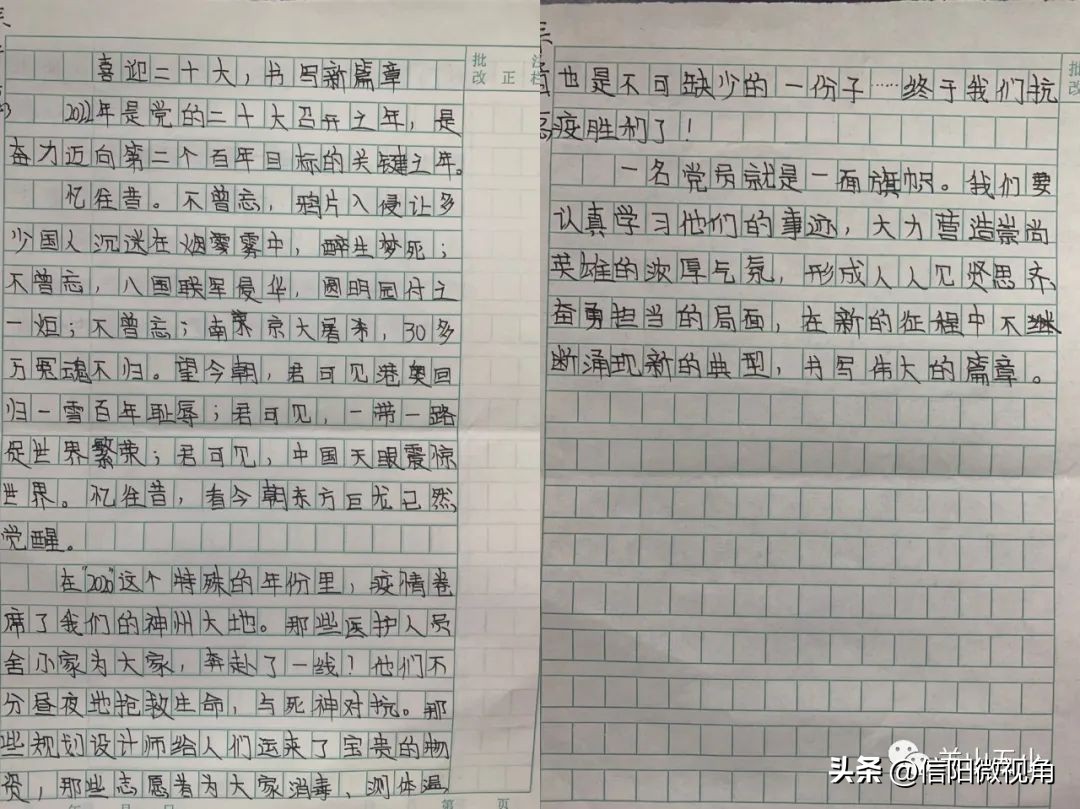 喜迎二十大，书写新篇章
批改 正 注栏
2022年是党的二十大召开之年，是
奋力迈向第二个百年目标的关键之年。
忆往昔。不曾忘，鸦片入侵让多
少国人沉迷在烟雾雾中，醉生梦死；
不曾忘，八国联军侵华，圆明园付之
一炬；不曾忘；南京大屠杀，30多
万冤魂不归。望今朝，君可见港奥回
归一雪百年耻辱；君可见，一带一路
促世界繁荣；君可见，中国天眼震惊
世界。忆往昔，看今朝东方巨龙已然
觉醒。
在"2020"这个特殊的年份里，疫情卷
席了我们的神州大地。那些医护人员
舍小家为大家，奔赴了一线？他们不
分昼夜地抢救生命，与死神对抗。那
些规划设计师给人们运来了宝贵的物
资，那些志愿者为大家消毒、测体温
年 月 日 第 页
批改
也是不可缺少的一份子……终于我们抗
疫胜利了！
一名党员就是一面旗帜。我们要
认真学习他们的事迹，大力营造崇尚
英雄的浓厚气氛，形成人人见贤思齐、
奋勇担当的局面，在新的征程中不继
断涌现新的典型，书写伟大的篇章。
羊山五小
头条 @信阳微视角